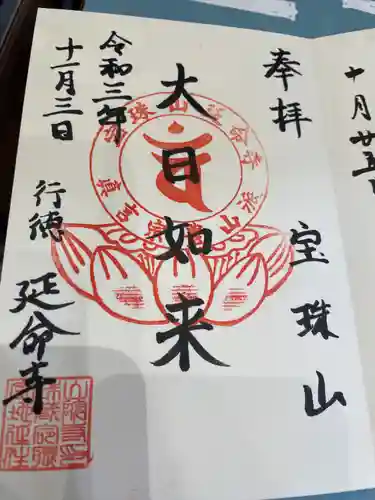 十月廿五
奉拝
宝珠山
大日如来
令和三年
十一月三日
行徳
延命寺